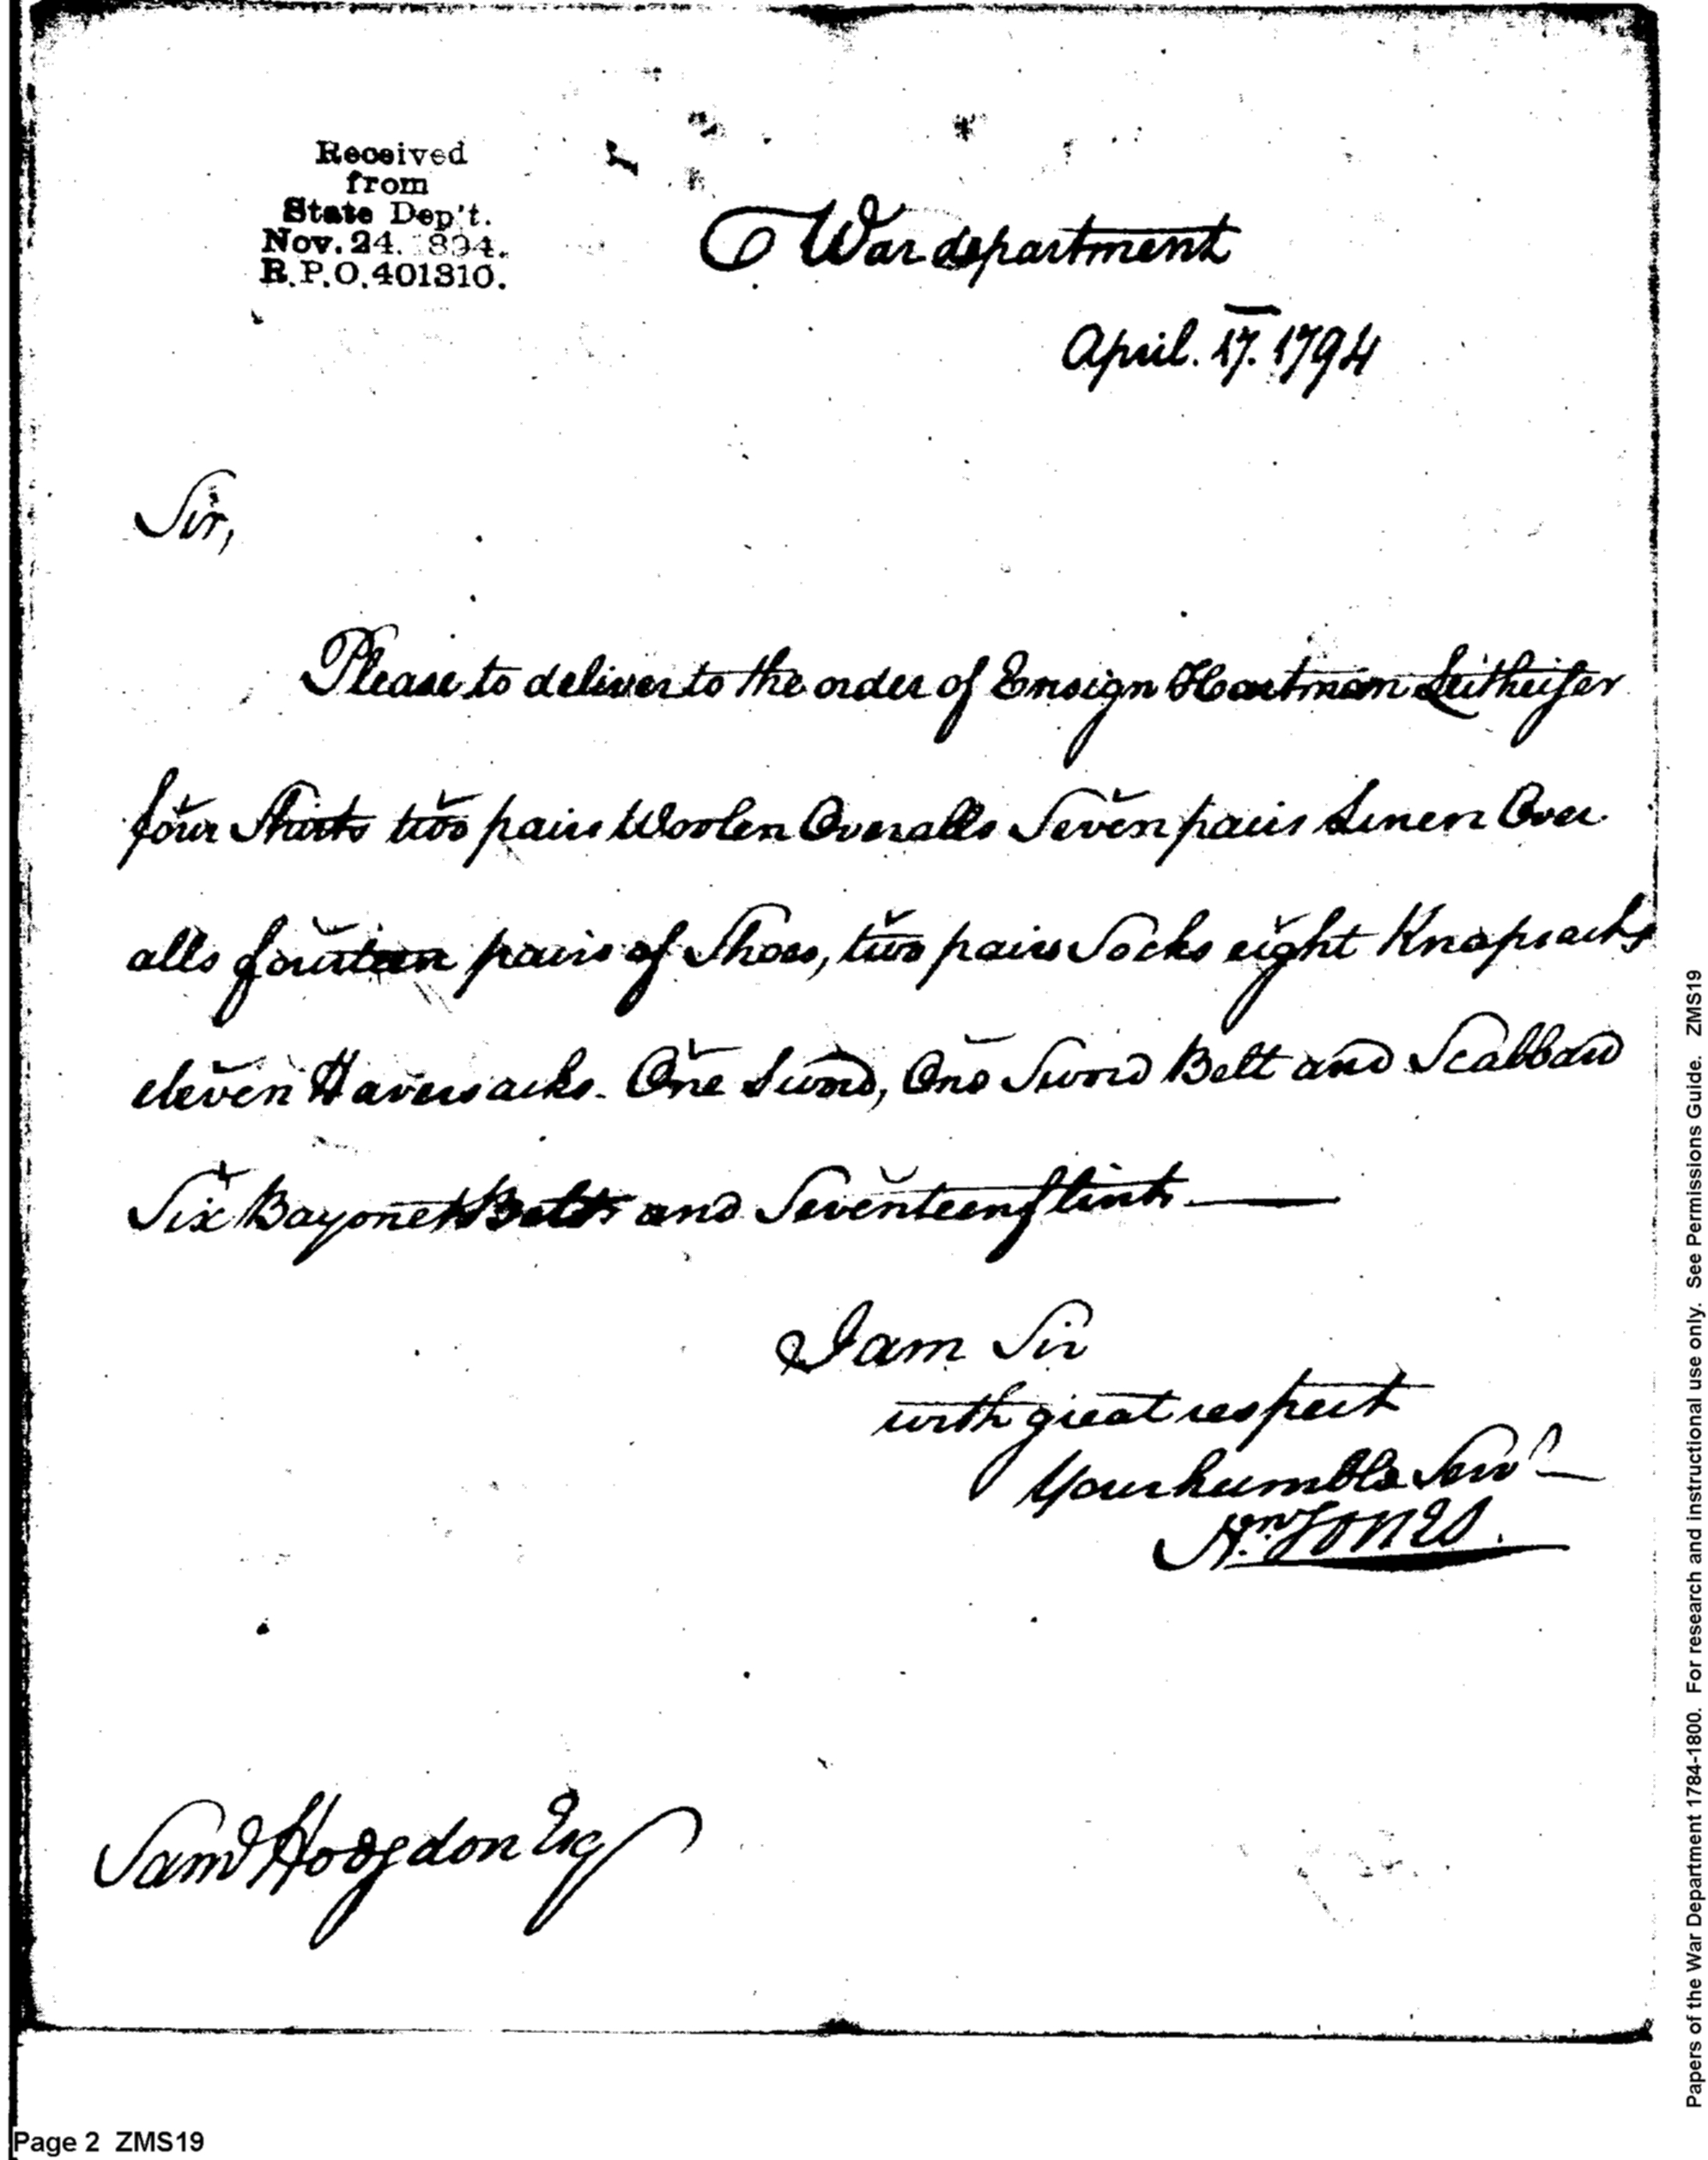 Received
from
State Dep't.
Nov. 24. 1894.
R.P.O. 401310.
War department
April. 17. 1794
Sir,
Please to deliver to the order of Ensign Hartman Leitheiser
four Shirts two pairs Woolen Overalls Seven pairs Linen Over
alls fourteen pairs of Shoes, two pairs Socks eight Knapsacks
eleven Haversacks. One Sword, One Sword Belt and Scabbard
Six Bayonet Belts and Seventeen flints
I am Sir
with great respect
Your humble Servt
Jn. Jones.
Saml Hodgdon Esq
Page 2 ZMS19
Papers of the War Department 1784-1800. For research and instructional use only. See Permissions Guide. ZMS19